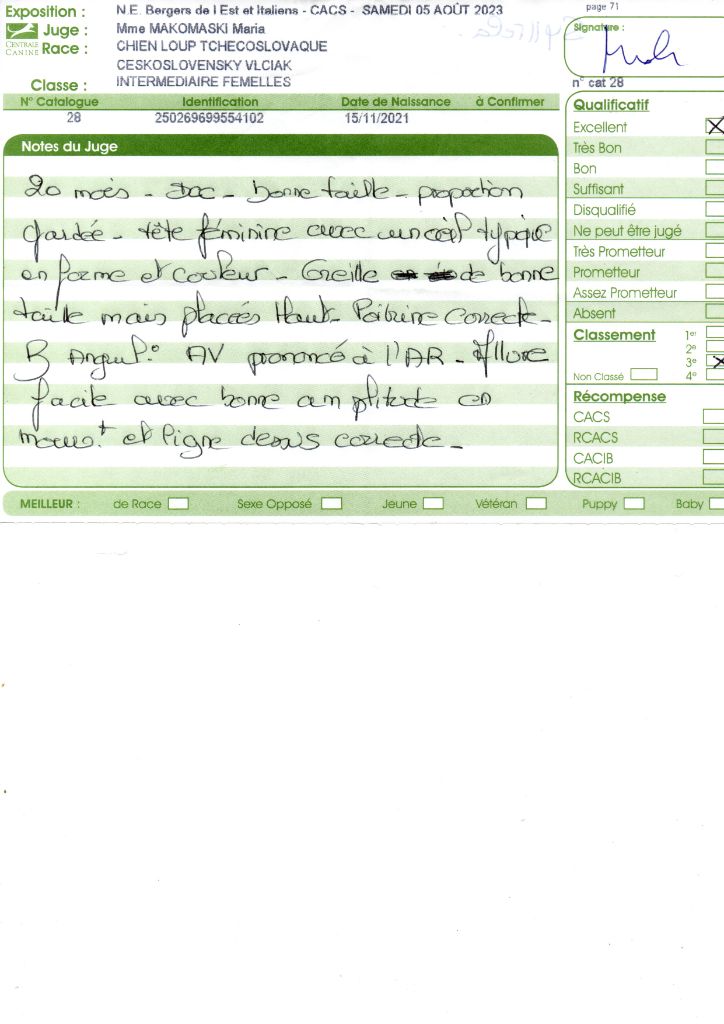 Exposition : N.E. Bergers de l Est et Italiens - CACS - SAMEDI 05 AOÛT 2023
Juge : Mme MAKOMASKI Maria
CENTRALE CANINE
Race : CHIEN LOUP TCHECOSLOVAQUE
CESKOSLOVENSKY VLCIAK
Classe : INTERMEDIAIRE FEMELLES
N° Catalogue Identification Date de Naissance à Confirmer
28 250269699554102 15/11/2021
Notes du Juge
20 mois - - bonne taille - proportion
gardée - tête féminine avec un œil typique
en forme et couleur - Oreille de bonne
taille mais placées Haut - Poitrine correcte -
B Angul° AV prononcé à l'AR - Allure
facile avec bonne amplitude en
mouv.t et ligne dessus correcte -
MEILLEUR : de Race Sexe Opposé Jeune Vétéran Puppy Baby
page 71
Signature :
n° cat 28
Qualificatif
Excellent X
Très Bon
Bon
Suffisant
Disqualifié
Ne peut être jugé
Très Prometteur
Prometteur
Assez Prometteur
Absent
Classement 1er
2e
3e X
Non Classé 4e
Récompense
CACS
RCACS
CACIB
RCACIB